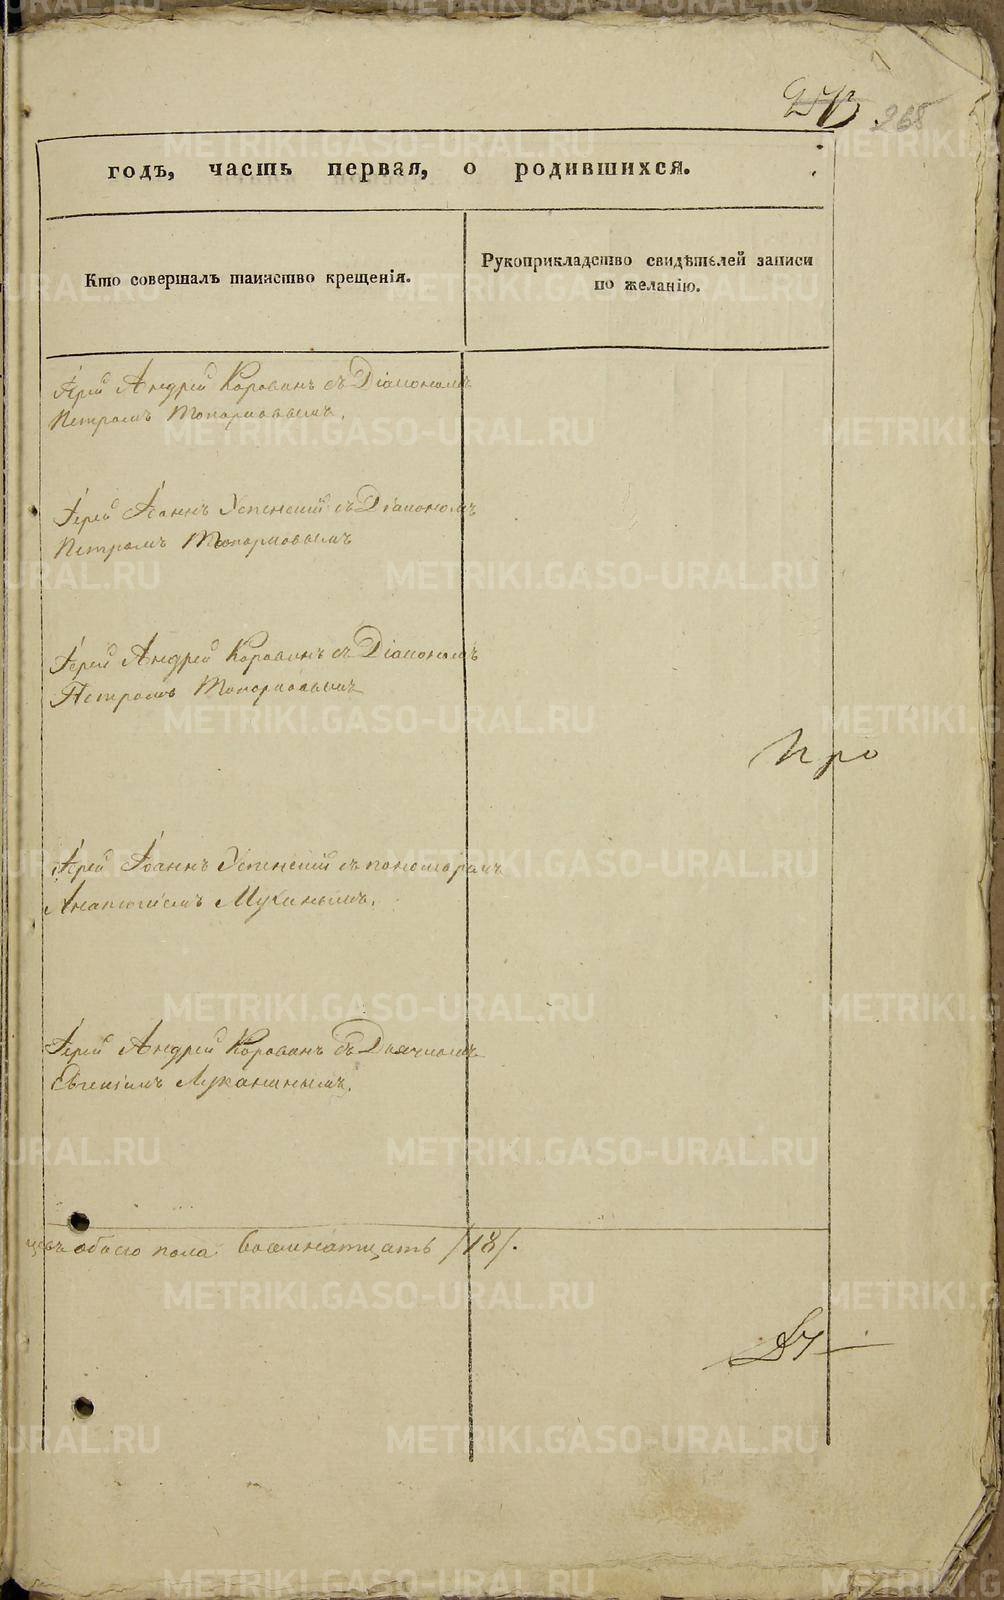 268
годъ, часть первая, о родившихся.
Кто совершалъ таинство крещенія.
Рукоприкладство свидѣтелей записи
по желанію.
Іерей Андрей Корованъ съ Діакономъ
Петромъ Топорковымъ.
Іерей Іоаннъ Успенскій съ Діакономъ
Петромъ Топорковымъ
Іерей Андрей Корованъ съ Діакономъ
Петромъ Топорковымъ
Про
Іерей Іоаннъ Успенскій съ пономаремъ
Мукинымъ.
Іерей Андрей Корованъ съ Дьячкомъ
Евгеніемъ Луканинымъ.
обоего пола восемнатцать /18/.
METRIKI.GASO-URAL.RU